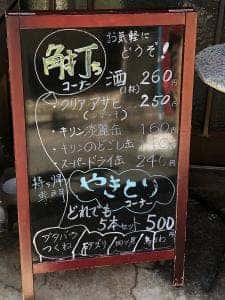 お気軽に
どうぞ!
角打ち
コーナー
酒(1杯) 260円
・クリアアサヒ 250円
・キリン淡麗缶 160円
・キリンのどごし缶
・スーパードライ缶 240円
持ち帰
やきとり
コーナー
どれでも
5本セット 500円
ブタバラ
つくね